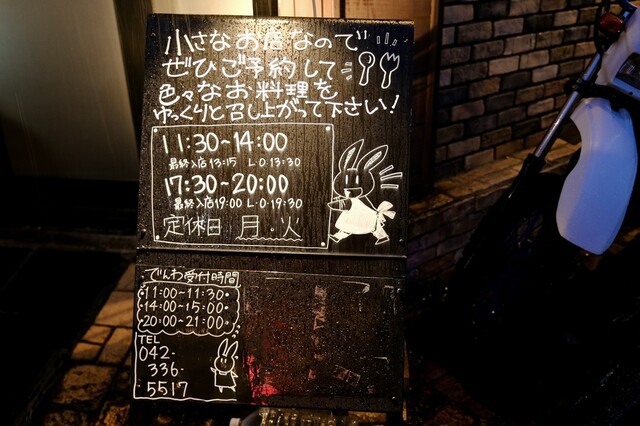 小さなお店なので
ぜひご予約して
色々なお料理を
ゆっくりと召し上がって下さい!
11:30~14:00
最終入店13:15 L・O 13:30
17:30~20:00
最終入店19:00 L・O 19:30
定休日 月・火
でんわ受付時間
11:00~11:30
14:00~15:00
20:00~21:00
TEL
042-
336-
5517